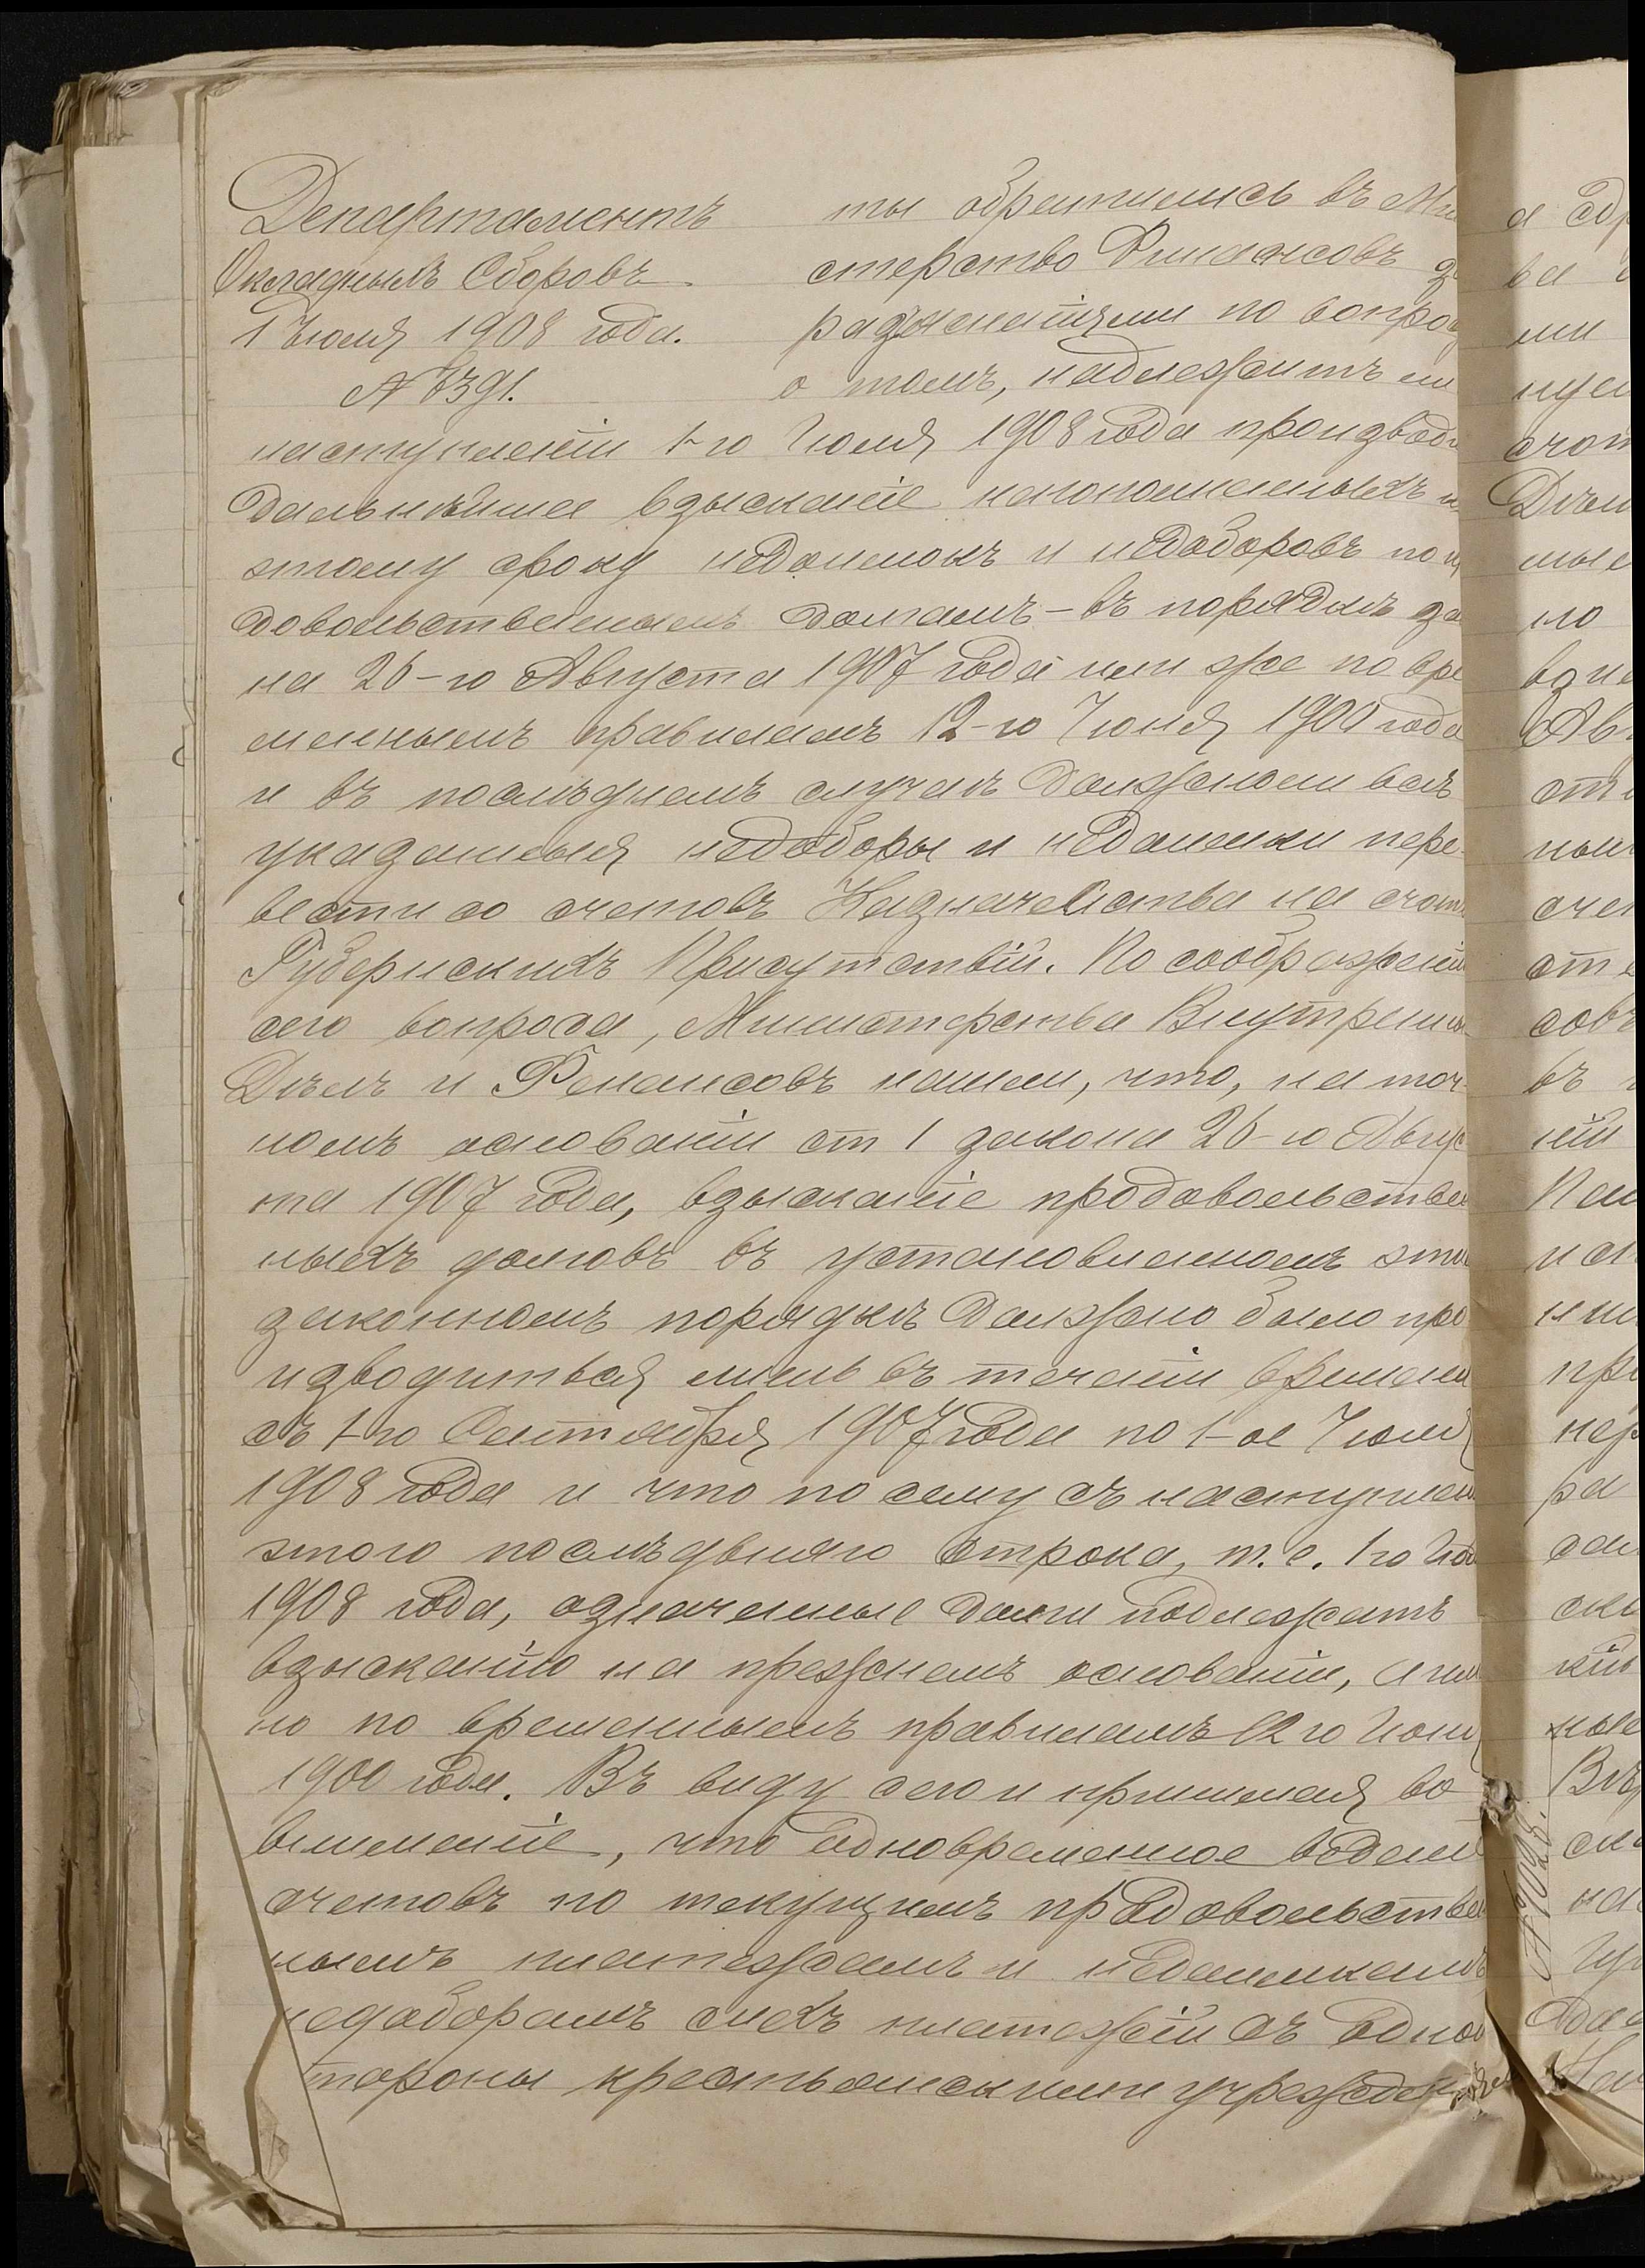 Департаментъ
Окладныхъ Сборовъ
1 Июля 1908 года.
№ 7391.
ты обратились въ Ми
стерство Финансовъ за
разъясненіями по вопрос
о томъ, надлежитъ ли
наступленіи 1-го Июля 1908 года производи
дальнѣйшее взысканіе непополненныхъ к
этому сроку недоимокъ и недоборовъ по п
довольственнымъ долгамъ - въ порядкѣ за
на 26-го Августа 1907 года или же по вре
меннымъ правиламъ 12-го Июня 1900 года
и въ послѣднемъ случаѣ должно ли всѣ
указанныя недоборы и недоимки пере
вести со счетовъ Казначейства на счет
Губернскихъ Присутствій. По соображеніи
сего вопроса, Министерства Внутренни
Дѣлъ и Финансовъ нашли, что, на точ
номъ основаніи ст 1 закона 26-го Авгус
та 1907 года, взысканіе продовольствен
ныхъ долговъ въ установленномъ эти
закономъ порядкѣ должно было про
изводиться лишь въ теченіи времени
съ 1-го Сентября 1907 года по 1-ое Июля
1908 года и что посему съ наступлен
этого послѣдняго строка, т.е. 1го Июл
1908 года, означенные долги подлежатъ
взысканію на прежнемъ основаніи, а им
но по временнымъ правиламъ 12 го Июня
1900 года. Въ виду сего и принимая во
вниманіе, что одновременное веденіе
счетовъ по текущимъ продовольствен
нымъ платежамъ и недоимкамъ
недоборамъ сихъ платежей съ одной
стороны крестьянскими учрежден